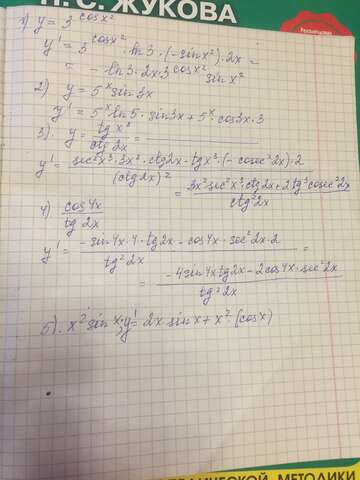 П. С. ЖУКОВА
1) y = 3^cosx²
y' = 3^cosx² · ln3 · (-sinx²) · 2x =
= - ln3 · 2x · 3^cosx² sinx²
2) y = 5^x sin3x
y' = 5^x ln5 · sin3x + 5^x · cos3x · 3
3) y = tgx³ / ctg2x =
y' = sec²x³ · 3x² · ctg2x - tgx³ · (- cosec²2x) · 2 / (ctg2x)² =
= 3x² sec²x³ · ctg2x + 2tg³ cosec²2x / ctg²2x
4) cos4x / tg2x
y' = -sin4x · 4 · tg2x - cos4x · sec²2x · 2 / tg²2x =
= -4sin4x tg2x - 2cos4x · sec²2x / tg²2x
5) x² sinx; y' = 2x sinx + x² · (cosx)
МЕТОДИКИ